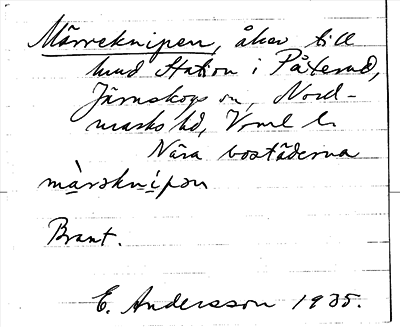 Märreknipen, åker till
lmd Station i Påterud,
Järnskogs sn, Nord-
marks hd, Vrml l.
Nära bostäderna
màrəknípən
Brant.
E. Andersson 1935.